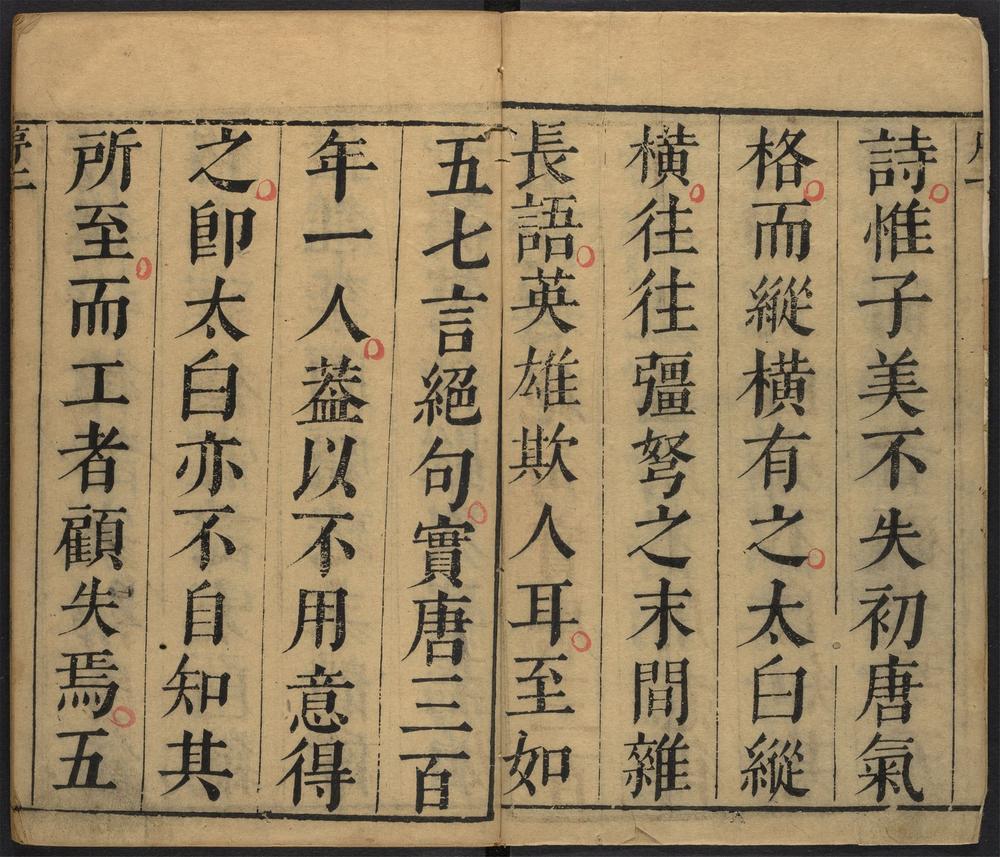 詩惟子美不失初唐氣
格而縱橫有之太白縱
橫往往彊弩之末間雜
長語英雄欺人耳至如
五七言絕句實唐三百
年一人葢以不用意得
之卽太白亦不自知其
所至而工者顧失焉五